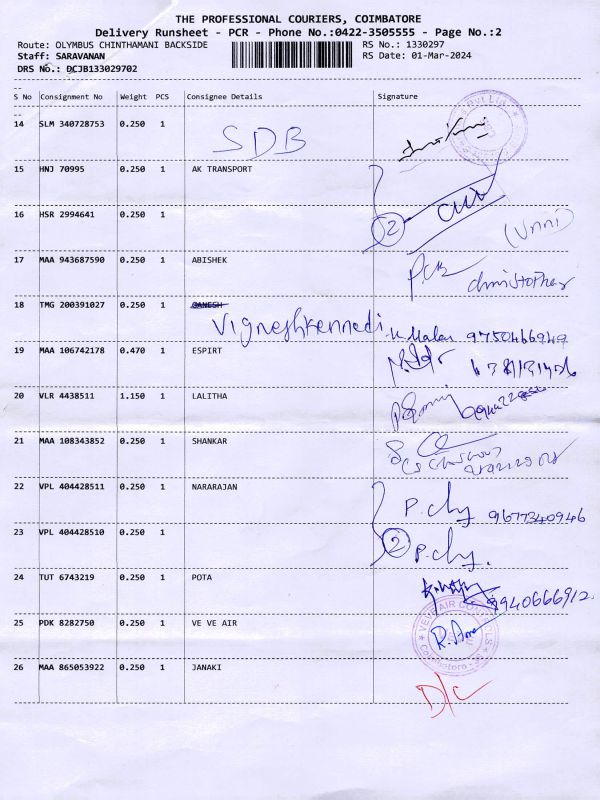 THE PROFESSIONAL COURIERS, COIMBATORE
Delivery Runsheet - PCR - Phone No.:0422-3505555 - Page No.:2
Route: OLYMBUS CHINTHAMANI BACKSIDE RS No.: 1330297
Staff: SARAVANAN RS Date: 01-Mar-2024
DRS No.: DCJB133029702
S No Consignment No Weight PCS Consignee Details Signature
14 SLM 340728753 0.250 1 SDB
15 HNJ 70995 0.250 1 AK TRANSPORT
16 HSR 2994641 0.250 1
2
(Unni)
17 MAA 943687590 0.250 1 ABISHEK PCB christopher
18 TMG 200391027 0.250 1 GANESH
Vigneshkennedi 9750466949
19 MAA 106742178 0.470 1 ESPIRT
20 VLR 4438511 1.150 1 LALITHA
21 MAA 108343852 0.250 1 SHANKAR
22 VPL 404428511 0.250 1 NARARAJAN P.chy 9677340946
23 VPL 404428510 0.250 1 2 P.chy.
24 TUT 6743219 0.250 1 POTA 9940666912
25 PDK 8282750 0.250 1 VE VE AIR
26 MAA 865053922 0.250 1 JANAKI D/C